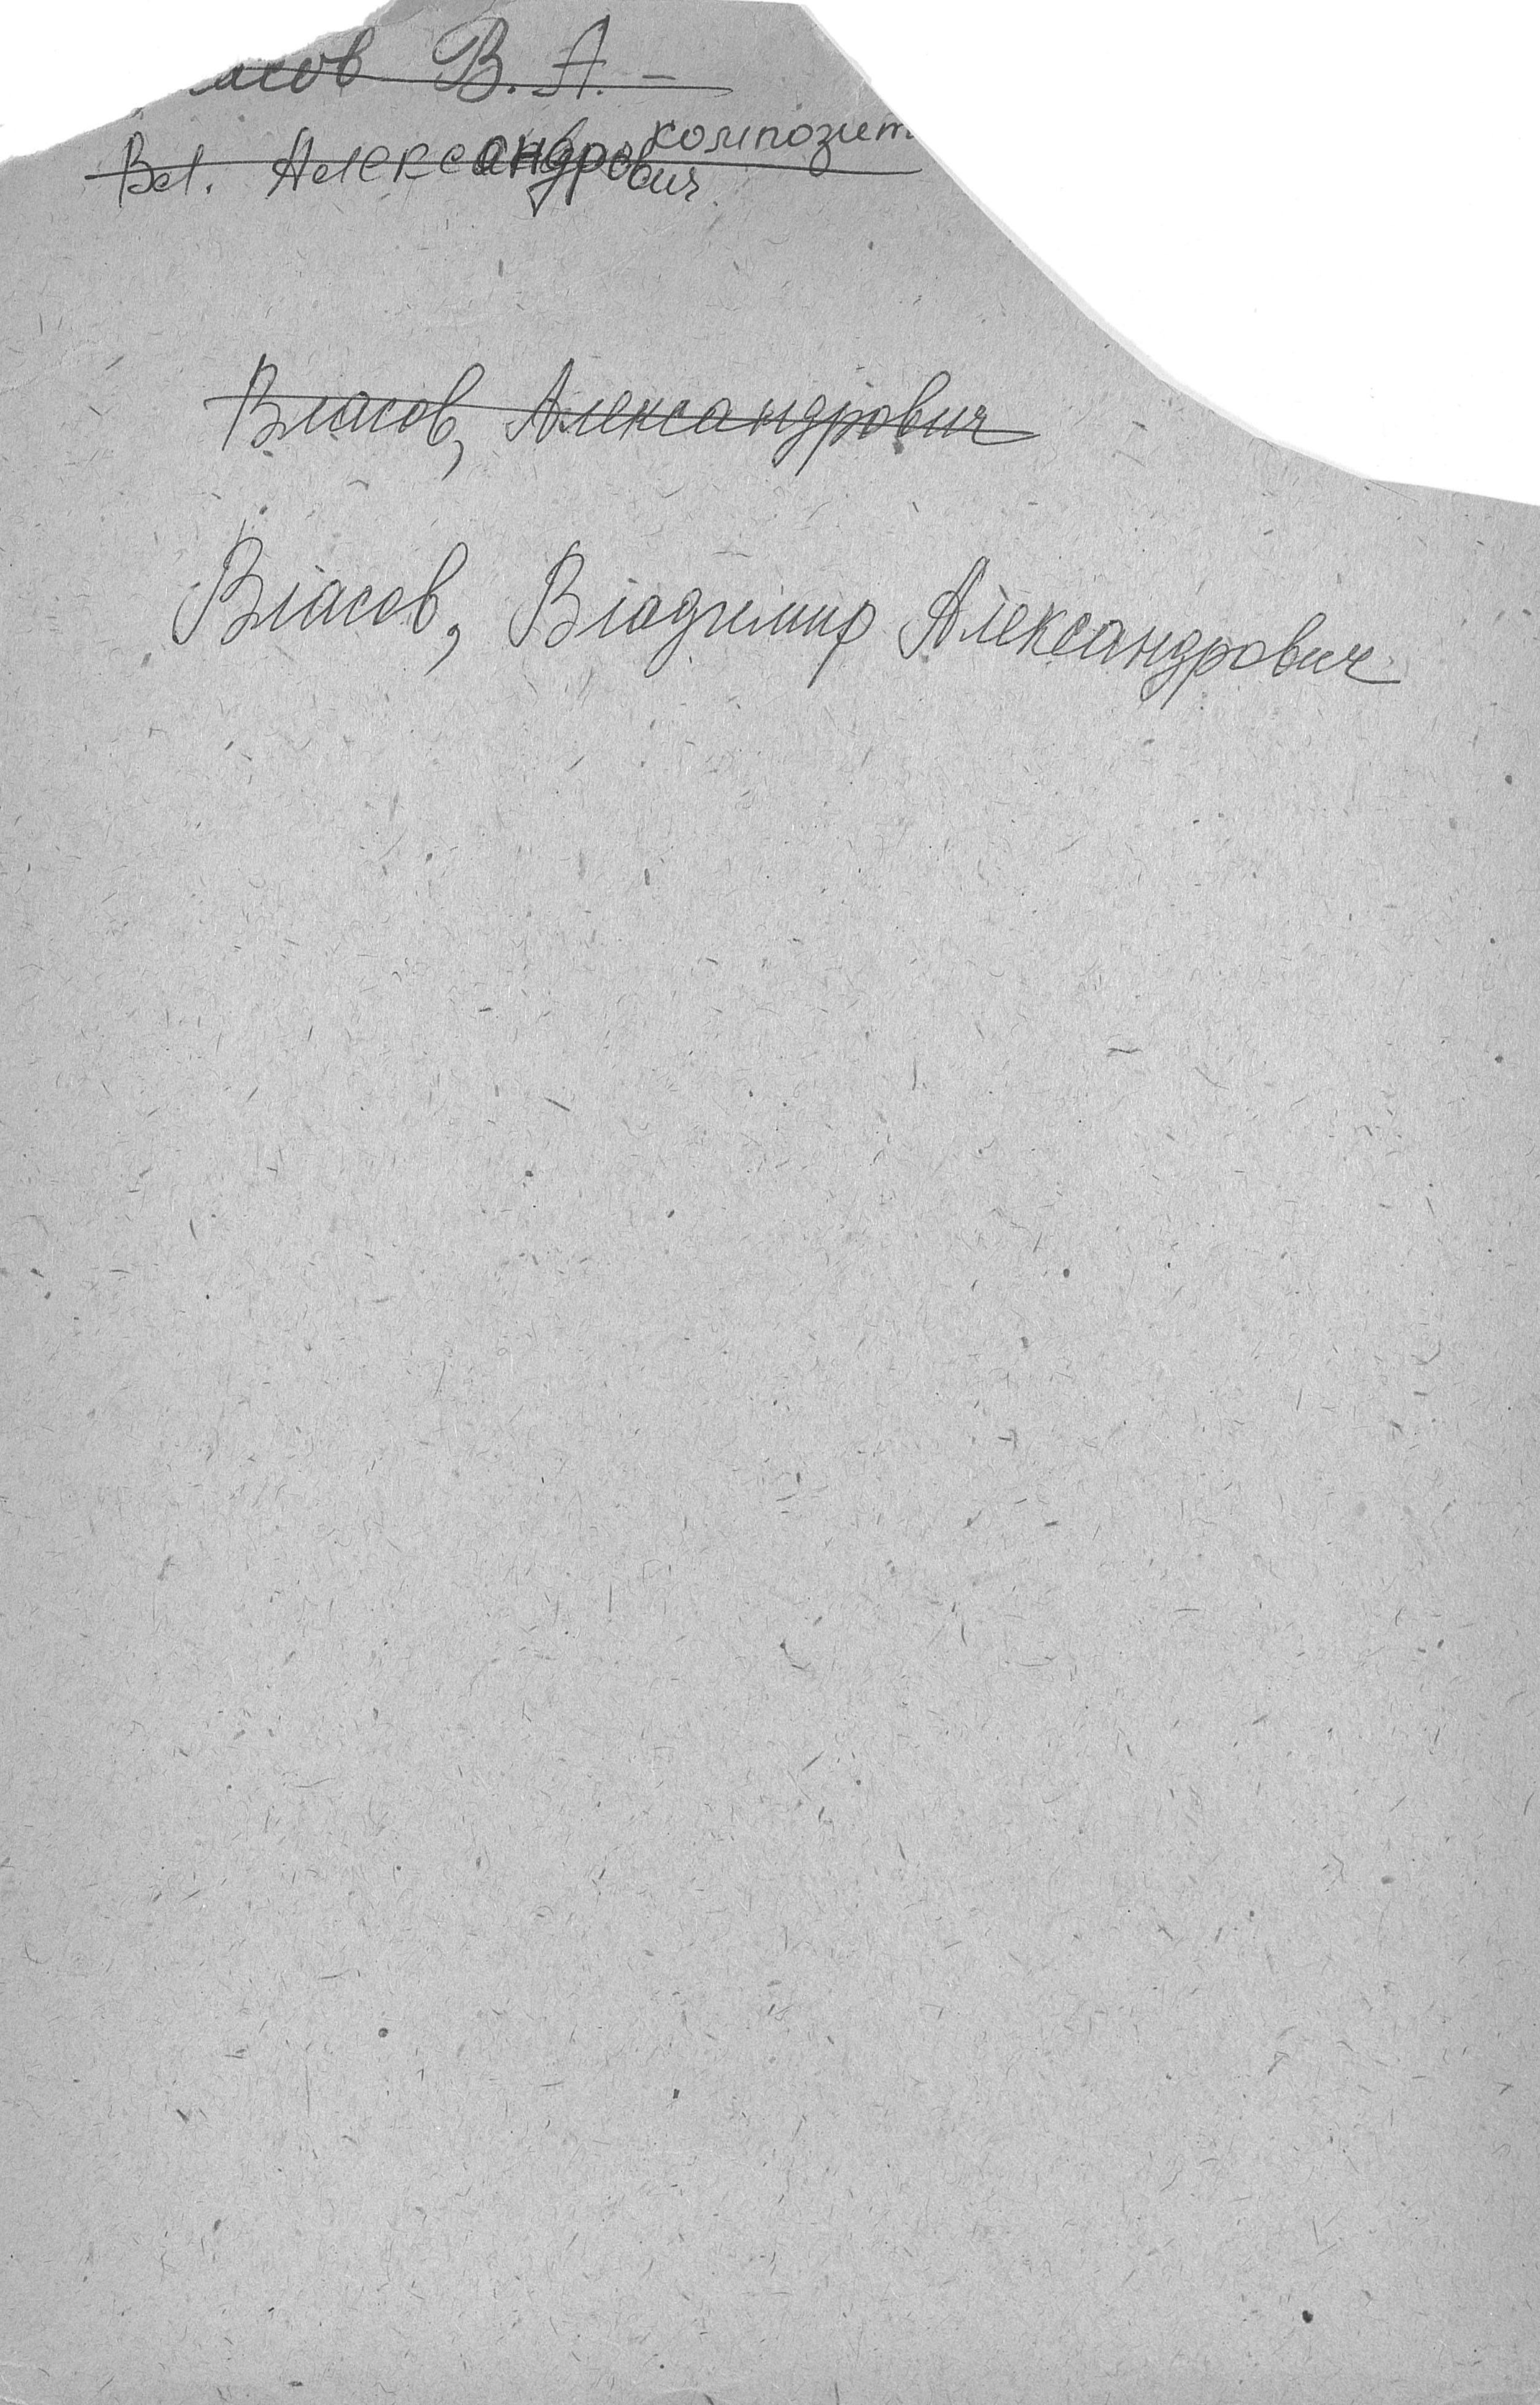 асов В. А. –
композит
Вл. Александрович
Власов, Александрович
Власов, Владимир Александрович